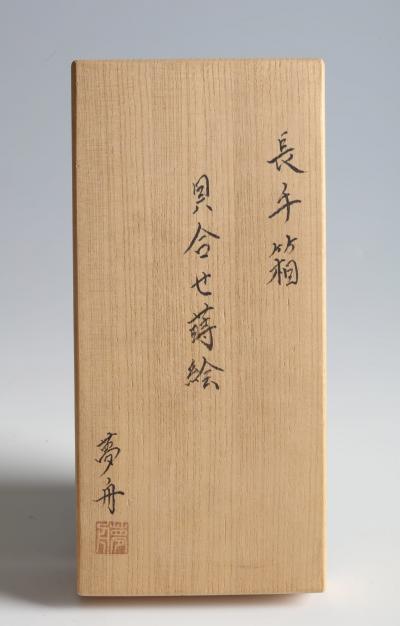 長手箱
貝合せ蒔絵
夢舟